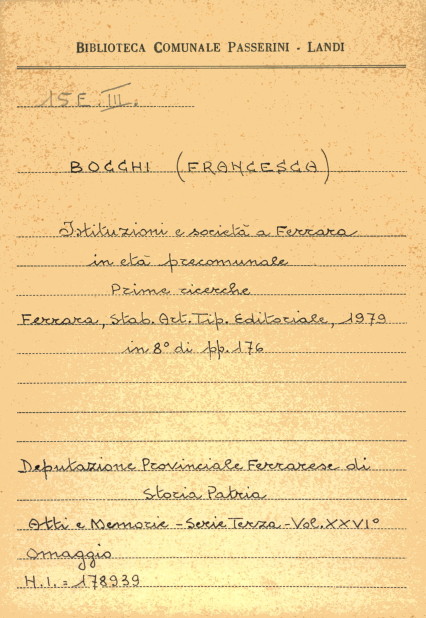 BIBLIOTECA COMUNALE PASSERINI - LANDI
15E.III.
BOCCHI (FRANCESCA)
Istituzioni e società a Ferrara
in età precomunale
Prime ricerche
Ferrara, Stab. Art. Tip. Editoriale, 1979
in 8° di pp. 176
Deputazione Provinciale Ferrarese di
Storia Patria
Atti e Memorie - Serie Terza - Vol. XXVI°
Omaggio
N.I. = 178939